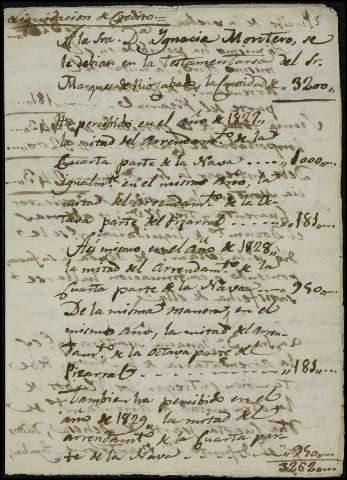 Liquidacion de Credito
A la Sra. Dª Ygnacia Montero, se
le debian en la Testamentaria del Sr.
Marques de la Cantidad de 3200,,
Ha percibido en el año de 1827,,
la mitad del Arrendamto. de la
Cuarta parte de la Nava ..... ,,1000,,
Igualmte. en el mismo Año, la
mitad del arrendamto. de la Oc-
tava parte del Pizarral ..... ,,181,,
Asi mismo, en el Año de 1828,,
la mitad del Arrendamto. de la
Cuarta parte de la Nava ..... ,,950,,
De la misma manera, en el
mismo Año, la mitad del Arren-
damto. de la Octava parte del
Pizarral ..... ,,181,,
Tambien ha percibido en el
año de 1829,, la mitad del
arrendamto. de la Cuarta par-
te de la Nava ..... ,,950,,
3262,,